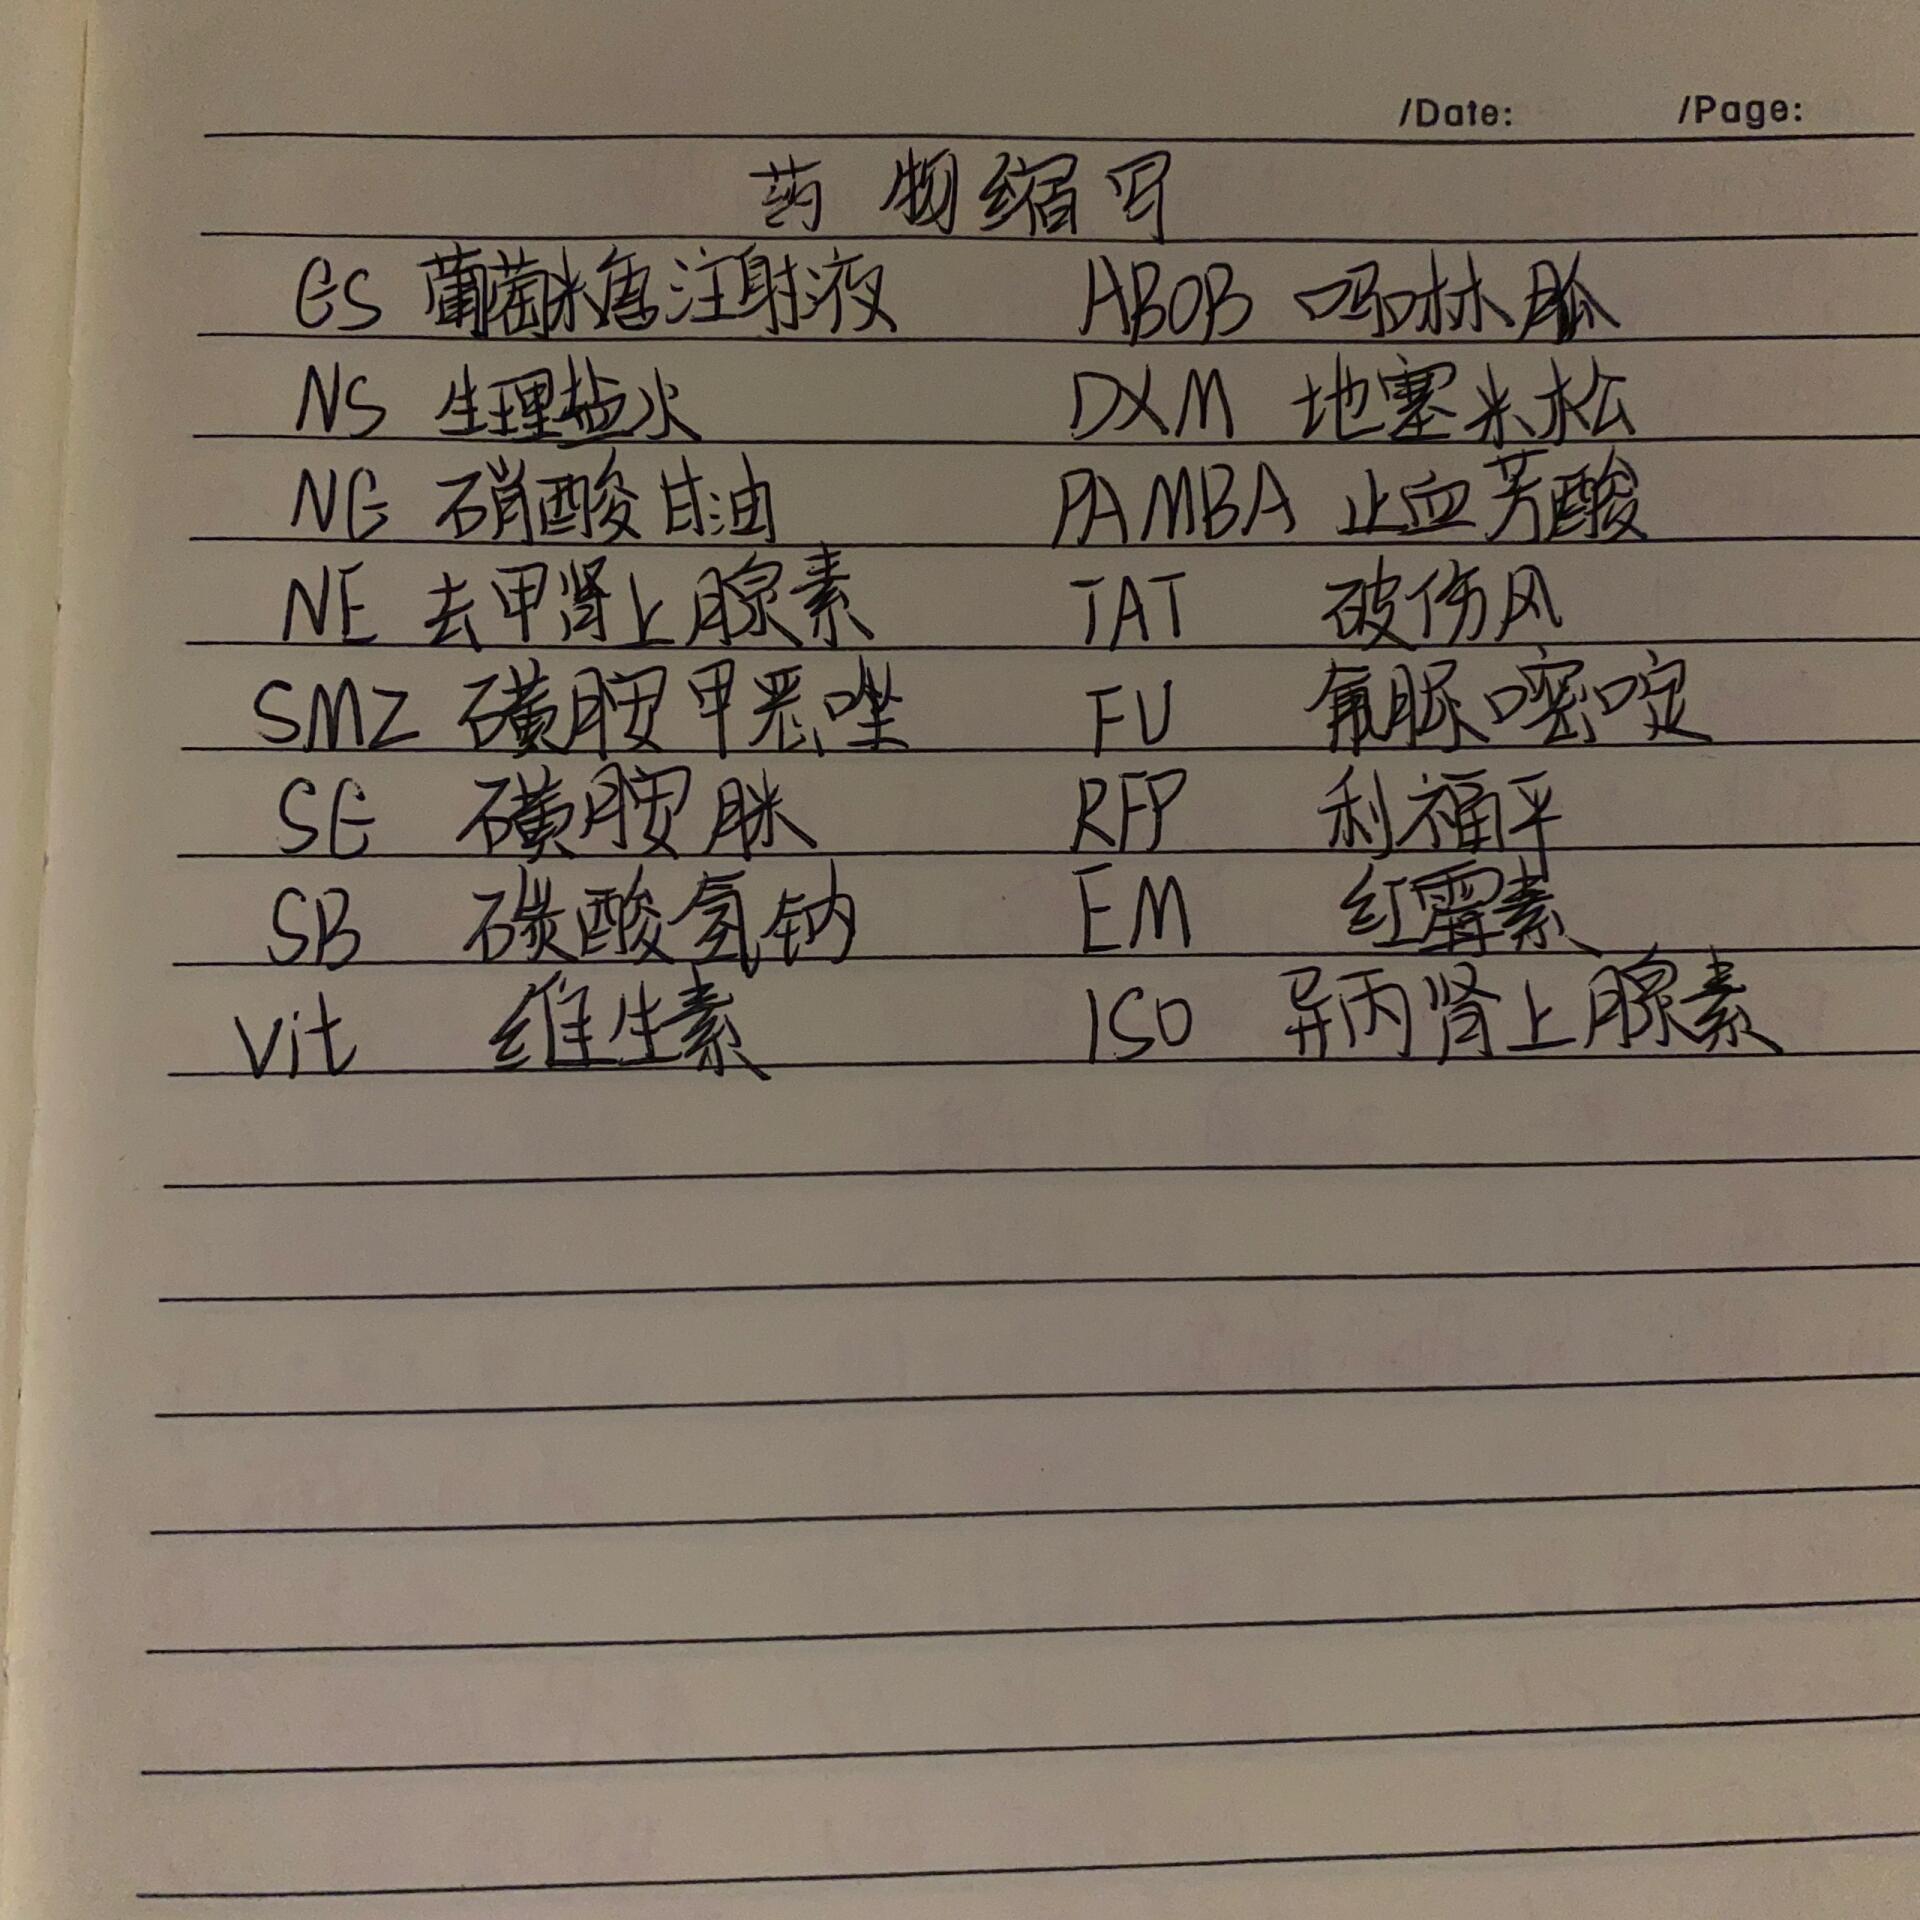 /Date: /Page:
药物缩写
GS 葡萄糖注射液 ABOB 吗啉胍
NS 生理盐水 DXM 地塞米松
NG 硝酸甘油 PAMBA 止血芳酸
NE 去甲肾上腺素 TAT 破伤风
SMZ 磺胺甲恶唑 FU 氟脲嘧啶
SG 磺胺脒 RFP 利福平
SB 碳酸氢钠 EM 红霉素
Vit 维生素 ISO 异丙肾上腺素